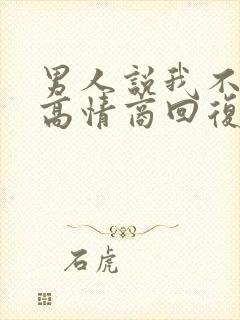 男人説我不
高情商回復
石虎